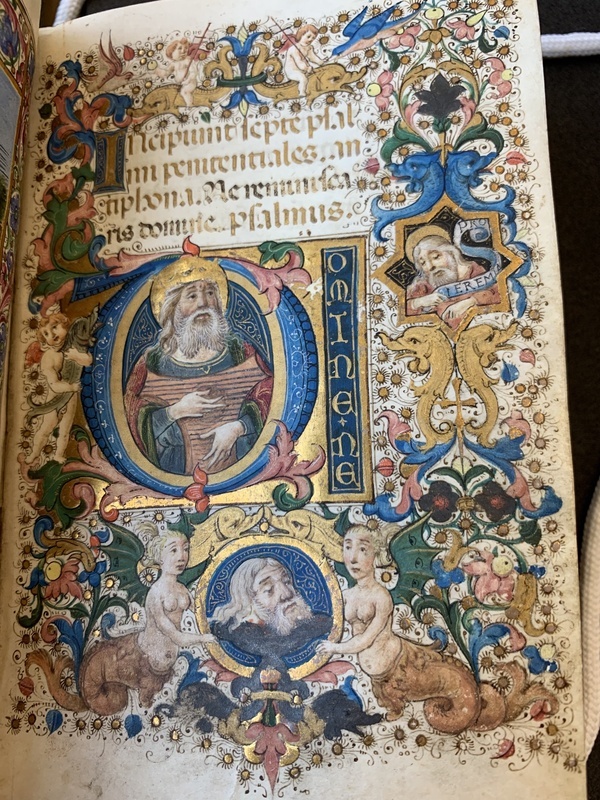 Incipiunt septe psal
mi penitentiales. an
tiphona. Ne reminisca
ris domine. psalmus.
DOMINE·NE
IEREM